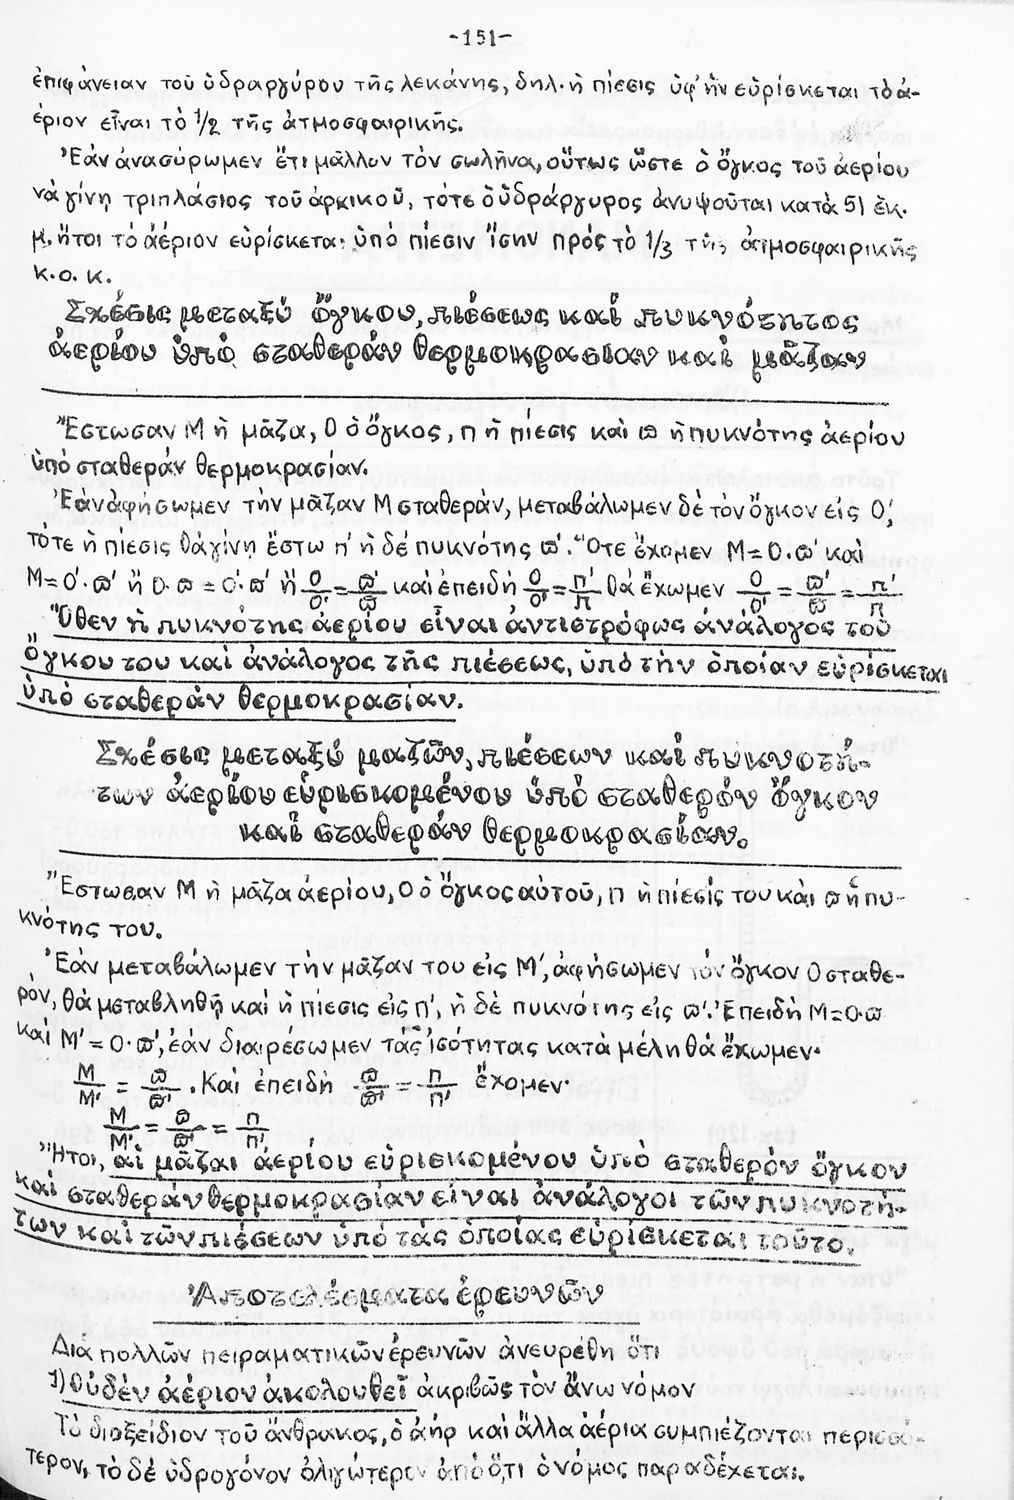 -151-
ἐπιφάνειαν τοῦ ὑδραργύρου τῆς λεκάνης, δηλ. ἡ πίεσις ὑφ' ἣν εὑρίσκεται τὸ ἀ-
έριον εἶναι τὸ 1/2 τῆς ἀτμοσφαιρικῆς.
Ἐὰν ἀνασύρωμεν ἔτι μᾶλλον τὸν σωλῆνα, οὕτως ὥστε ὁ ὄγκος τοῦ ἀερίου
νὰ γίνῃ τριπλάσιος τοῦ ἀρχικοῦ, τότε ὁ ὑδράργυρος ἀνυψοῦται κατὰ 51 ἑκ.
μ. ἤτοι τὸ ἀέριον εὑρίσκεται ὑπὸ πίεσιν ἴσην πρὸς τὸ 1/3 τῆς ἀτμοσφαιρικῆς
κ.ο.κ.
Σχέσις μεταξὺ ὄγκου, πιέσεως καὶ πυκνότητος
ἀερίου ὑπὸ σταθερὰν θερμοκρασίαν καὶ μᾶζαν
Ἔστωσαν Μ ἡ μᾶζα, Ο ὁ ὄγκος, π ἡ πίεσις καὶ ϖ ἡ πυκνότης ἀερίου
ὑπὸ σταθερὰν θερμοκρασίαν.
Ἐὰν ἀφήσωμεν τὴν μᾶζαν Μ σταθεράν, μεταβάλωμεν δὲ τὸν ὄγκον εἰς Ο',
τότε ἡ πίεσις θὰ γίνῃ ἔστω π' ἡ δὲ πυκνότης ϖ'. Ὅτε ἔχομεν Μ=Ο·ϖ' καὶ
Μ=Ο'·ϖ' ἢ Ο·ϖ=Ο'·ϖ' ἢ Ο/Ο'=ϖ'/ϖ καὶ ἐπειδὴ Ο/Ο'=π'/π θὰ ἔχωμεν Ο/Ο'=ϖ'/ϖ=π'/π
Ὅθεν ἡ πυκνότης ἀερίου εἶναι ἀντιστρόφως ἀνάλογος τοῦ
ὄγκου του καὶ ἀνάλογος τῆς πιέσεως, ὑπὸ τὴν ὁποίαν εὑρίσκεται
ὑπὸ σταθερὰν θερμοκρασίαν.
Σχέσις μεταξὺ μαζῶν, πιέσεων καὶ πυκνοτή-
των ἀερίου εὑρισκομένου ὑπὸ σταθερὸν ὄγκον
καὶ σταθερὰν θερμοκρασίαν.
Ἔστωσαν Μ ἡ μᾶζα ἀερίου, Ο ὁ ὄγκος αὐτοῦ, π ἡ πίεσίς του καὶ ϖ ἡ πυ-
κνότης του.
Ἐὰν μεταβάλωμεν τὴν μᾶζαν του εἰς Μ', ἀφήσωμεν τὸν ὄγκον Ο σταθε-
ρόν, θὰ μεταβληθῇ καὶ ἡ πίεσις εἰς π', ἡ δὲ πυκνότης εἰς ϖ'. Ἐπειδὴ Μ=Ο·ϖ
καὶ Μ'=Ο·ϖ', ἐὰν διαιρέσωμεν τὰς ἰσότητας κατὰ μέλη θὰ ἔχωμεν·
Μ/Μ' = ϖ/ϖ'. Καὶ ἐπειδὴ ϖ/ϖ' = π/π' ἔχομεν·
Μ/Μ' = ϖ/ϖ' = π/π'
Ἤτοι, αἱ μᾶζαι ἀερίου εὑρισκομένου ὑπὸ σταθερὸν ὄγκον
καὶ σταθερὰν θερμοκρασίαν εἶναι ἀνάλογοι τῶν πυκνοτή-
των καὶ τῶν πιέσεων ὑπὸ τὰς ὁποίας εὑρίσκεται τοῦτο.
Ἀποτελέσματα ἐρευνῶν
Διὰ πολλῶν πειραματικῶν ἐρευνῶν ἀνευρέθη ὅτι
1) Οὐδὲν ἀέριον ἀκολουθεῖ ἀκριβῶς τὸν ἄνω νόμον
Τὸ διοξείδιον τοῦ ἄνθρακος, ὁ ἀὴρ καὶ ἄλλα ἀέρια συμπιέζονται περισσό-
τερον, τὸ δὲ ὑδρογόνον ὀλιγώτερον ἀπὸ ὅ,τι ὁ νόμος παραδέχεται.